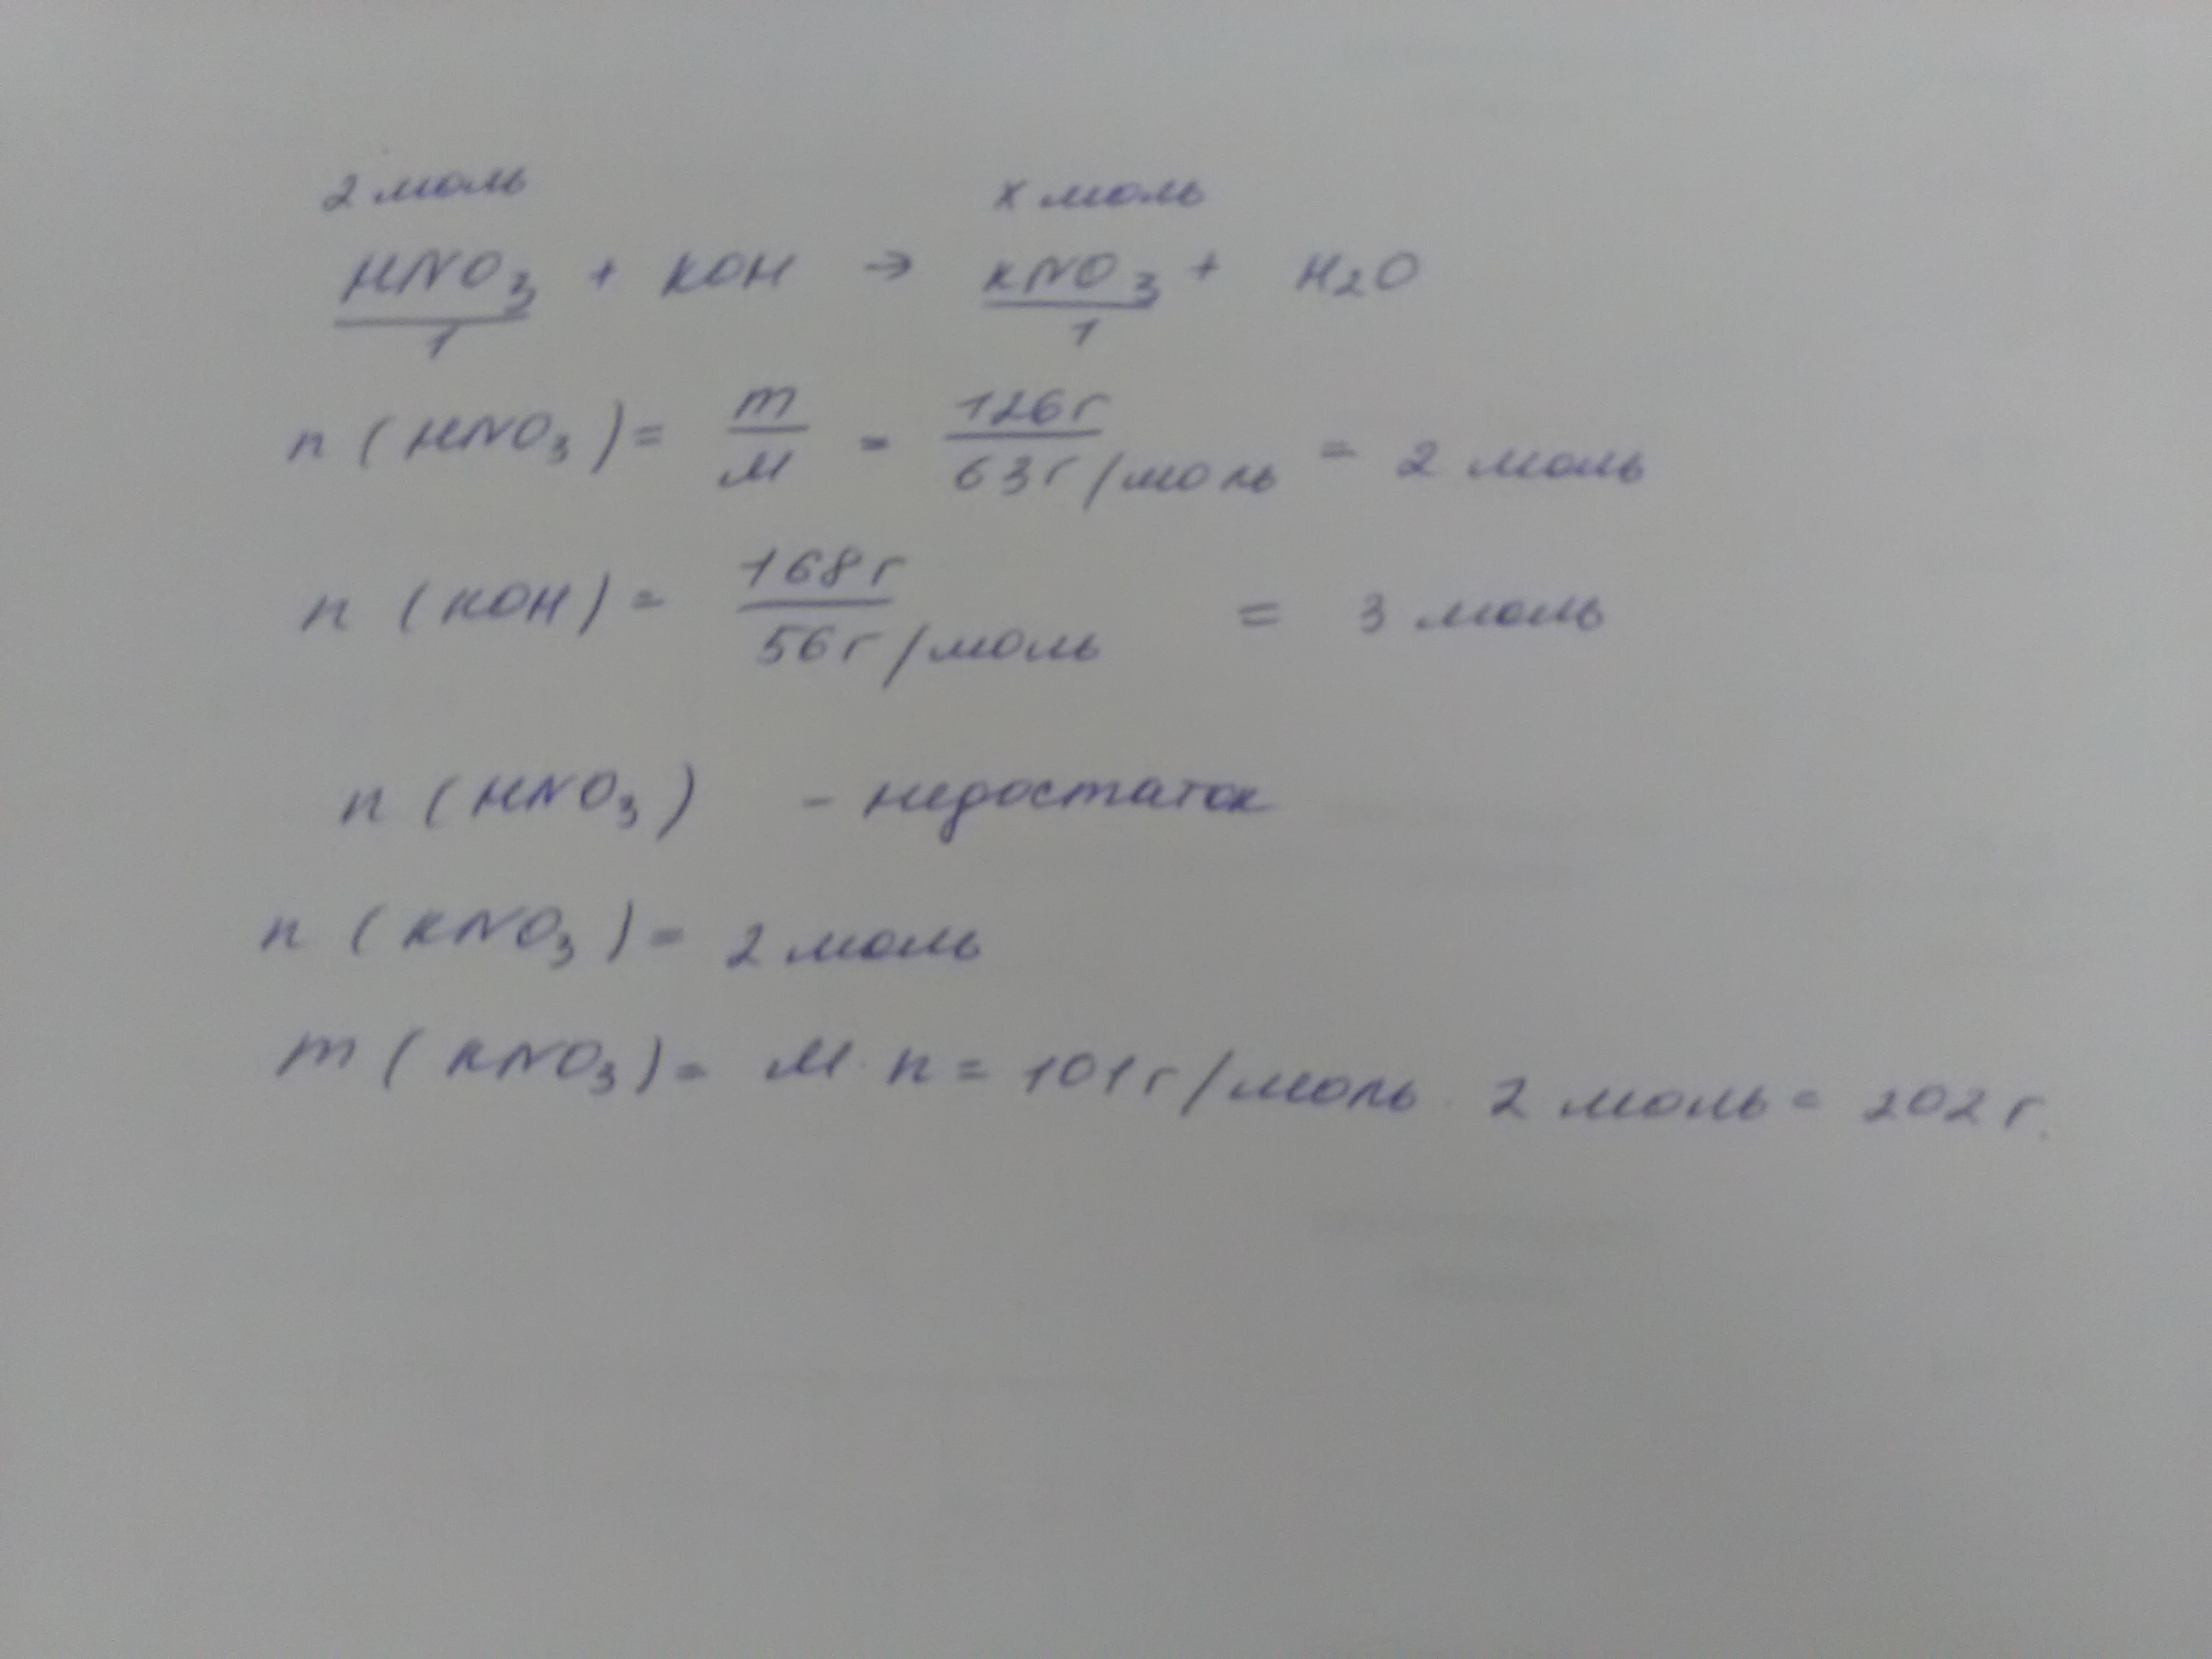 2 моль х моль
HNO₃ + KOH → KNO₃ + H₂O
1 1
n (HNO₃) = m/M = 126г/63г/моль = 2 моль
n (KOH) = 168г/56г/моль = 3 моль
n (HNO₃) - недостаток
n (KNO₃) = 2 моль
m (KNO₃) = M · n = 101г/моль · 2 моль = 202 г.